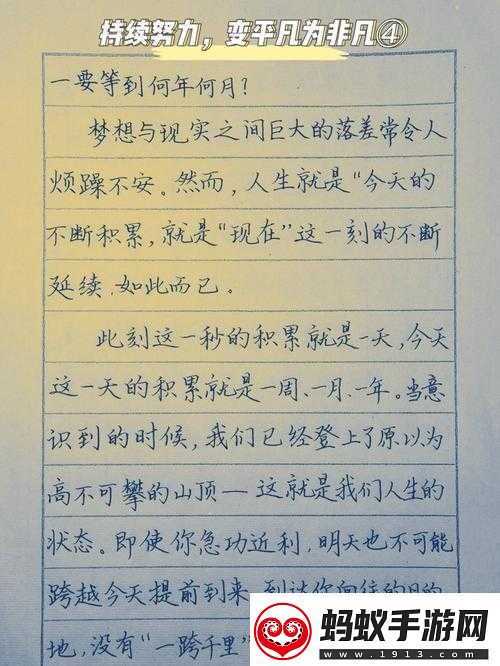 持续努力，变平凡为非凡④
一要等到何年何月？
梦想与现实之间巨大的落差常令人
烦躁不安。然而，人生就是“今天的
不断积累，就是“现在”这一刻的不断
延续，如此而已。
此刻这一秒的积累就是一天，今天
这一天的积累就是一周、一月、一年。当意
识到的时候，我们已经登上了原以为
高不可攀的山顶—这就是我们人生的
状态。即使你急功近利，明天也不可能
跨越今天提前到来 到达你向往的目的
地，没有“一跨千里”
蚂蚁手游网
www.1913.com